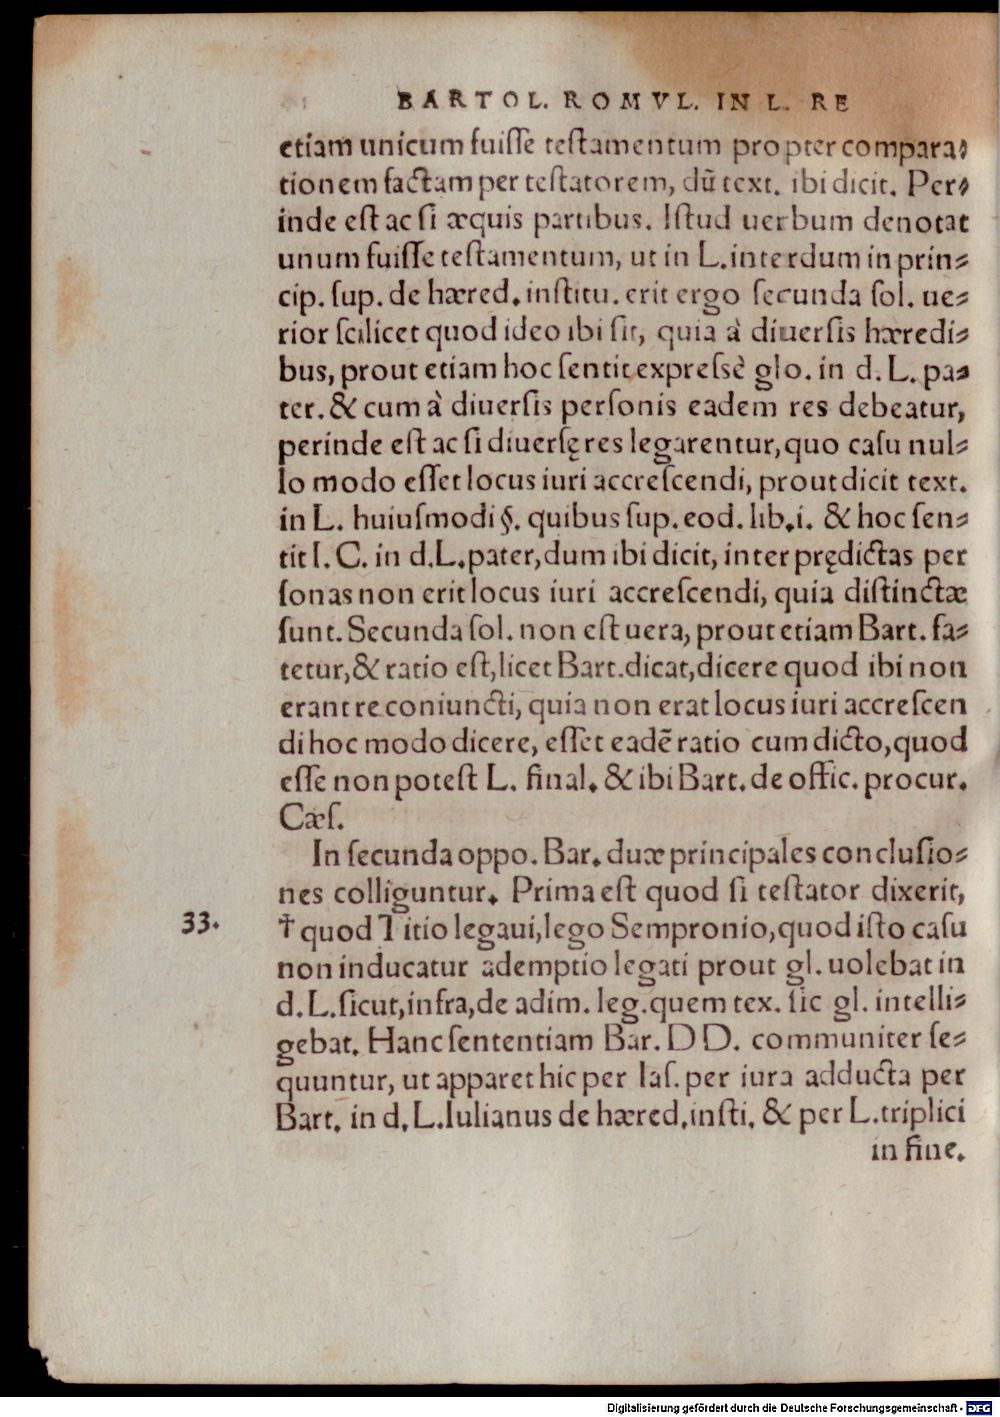 BARTOL. ROMVL. IN L. RE
etiam unicum fuiſſe teſtamentum propter compara⸗
tionem factam per teſtatorem, dū text. ibi dicit. Per⸗
inde eſt ac ſi æquis partibus. Iſtud uerbum denotat
unum fuiſſe teſtamentum, ut in L.interdum in prin⸗
cip. ſup. de hæred. inſtitu. erit ergo ſecunda ſol. ue⸗
rior ſcilicet quod ideo ibi ſit, quia à diuerſis hæredi⸗
bus, prout etiam hoc ſentit expreſsè glo. in d. L. pa⸗
ter. & cum à diuerſis perſonis eadem res debeatur,
perinde eſt ac ſi diuerſę res legarentur, quo caſu nul⸗
lo modo eſſet locus iuri accreſcendi, prout dicit text.
in L. huiuſmodi §. quibus ſup. eod. lib. i. & hoc ſen⸗
tit I. C. in d.L. pater, dum ibi dicit, inter prędictas per
ſonas non erit locus iuri accreſcendi, quia diſtinctæ
ſunt. Secunda ſol. non eſt uera, prout etiam Bart. fa⸗
tetur, & ratio eſt, licet Bart. dicat, dicere quod ibi non
erant re coniuncti, quia non erat locus iuri accreſcen
di hoc modo dicere, eſſet eadē ratio cum dicto, quod
eſſe non poteſt L. final. & ibi Bart. de offic. procur.
Cæſ.
In ſecunda oppo. Bar. duæ principales concluſio⸗
nes colliguntur. Prima eſt quod ſi teſtator dixerit,
33. † quod Titio legaui, lego Sempronio, quod iſto caſu
non inducatur ademptio legati prout gl. uolebat in
d. L. ſicut, infra, de adim. leg. quem tex. ſic gl. intelli⸗
gebat. Hanc ſententiam Bar. DD. communiter ſe⸗
quuntur, ut apparet hic per Iaſ. per iura adducta per
Bart. in d. L. Iulianus de hæred. inſti. & per L. triplici
in fine.
Digitalisierung gefördert durch die Deutsche Forschungsgemeinschaft - DFG